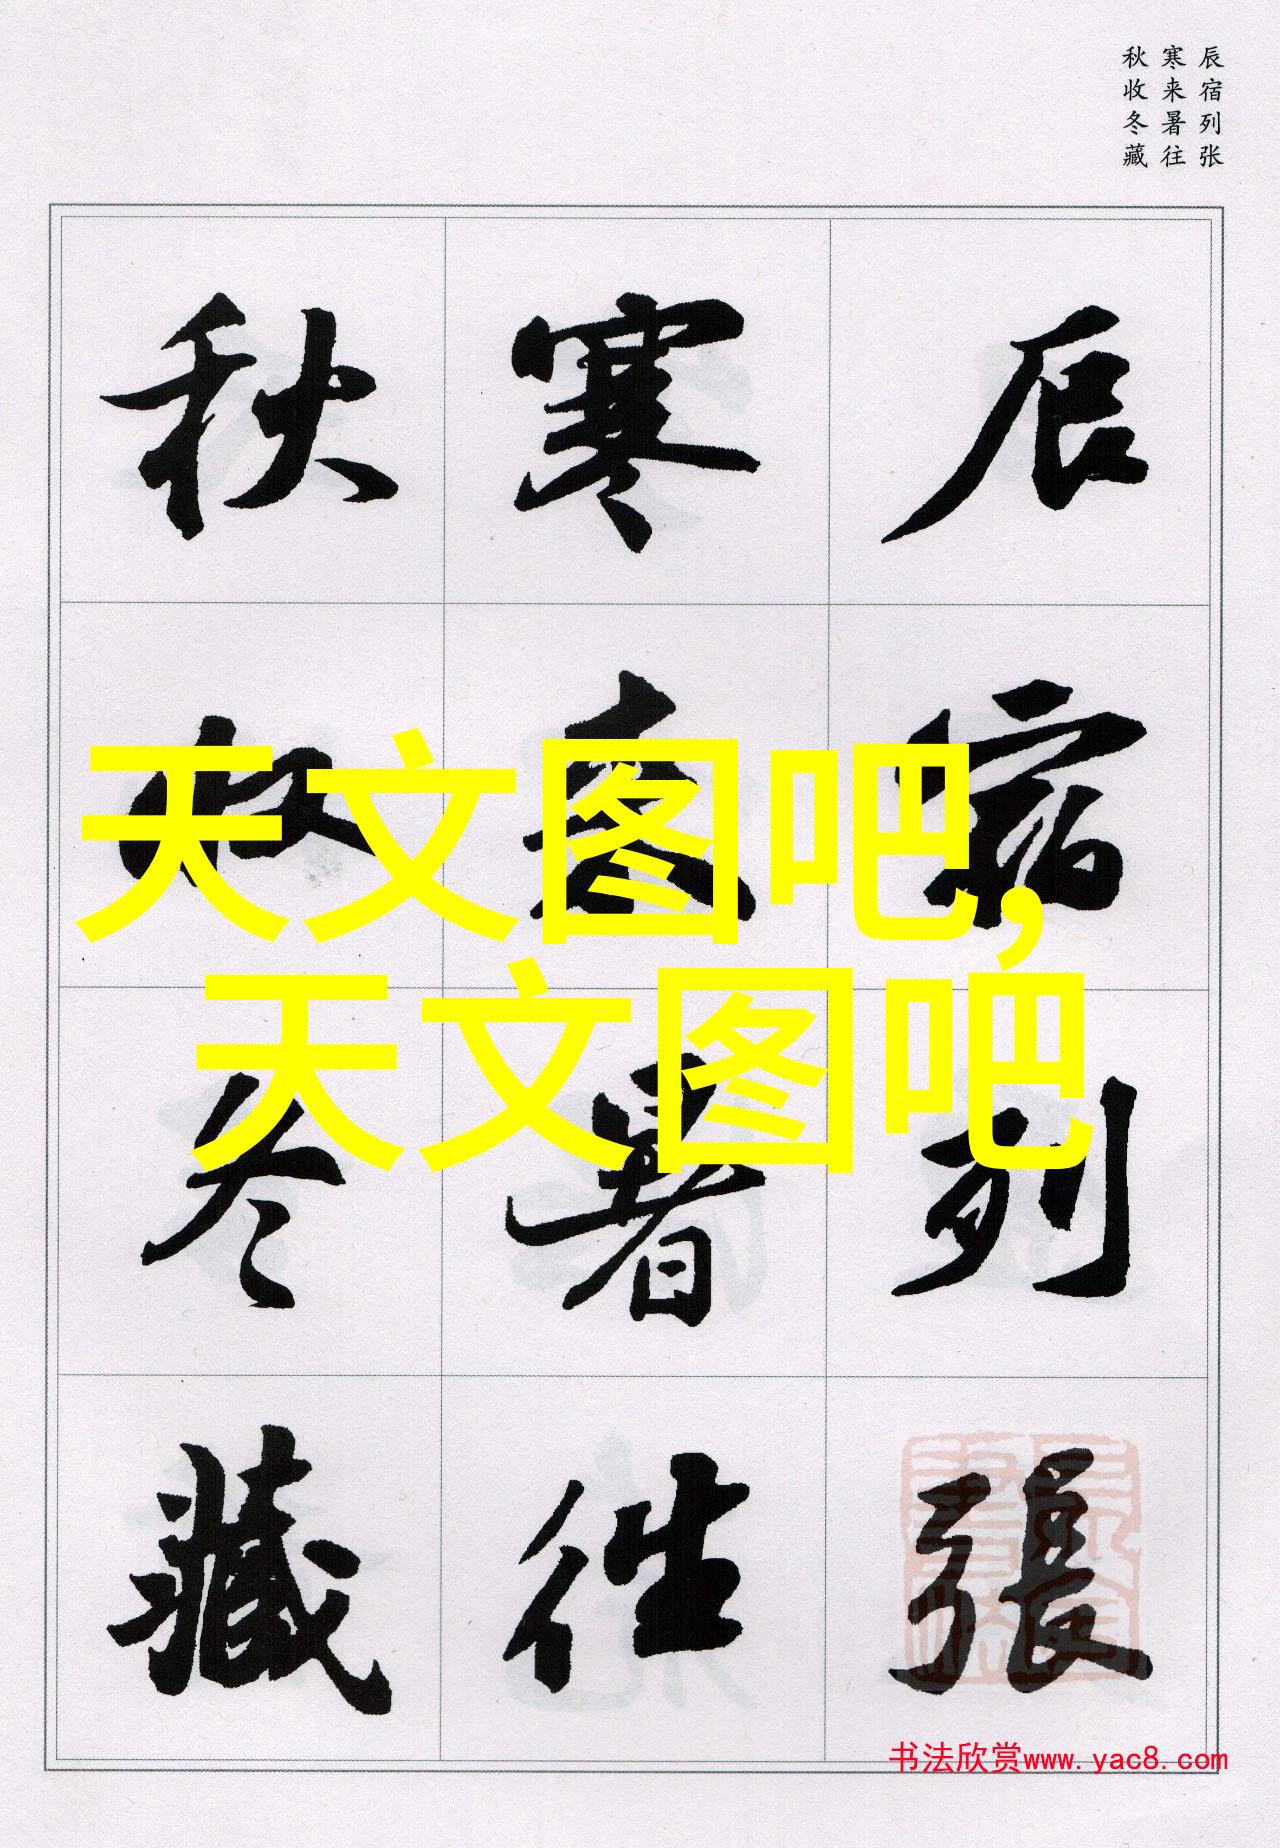 辰宿列张
寒来暑往
秋收冬藏
辰宿列張
寒来暑往
秋收冬藏
天文图吧,
天文图吧
书法欣赏www.yac8.com